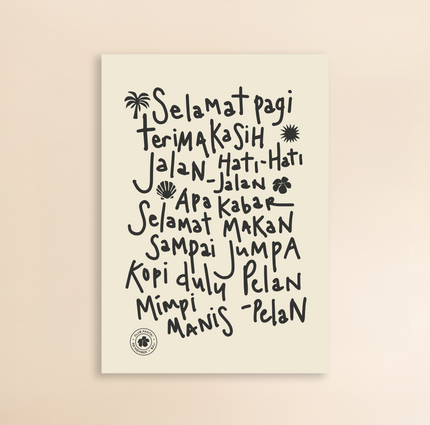 Selamat pagi
terimakasih
Jalan-Jalan
Hati-Hati
Apa Kabar
Selamat Makan
Sampai Jumpa
Kopi dulu
Pelan-Pelan
Mimpi Manis